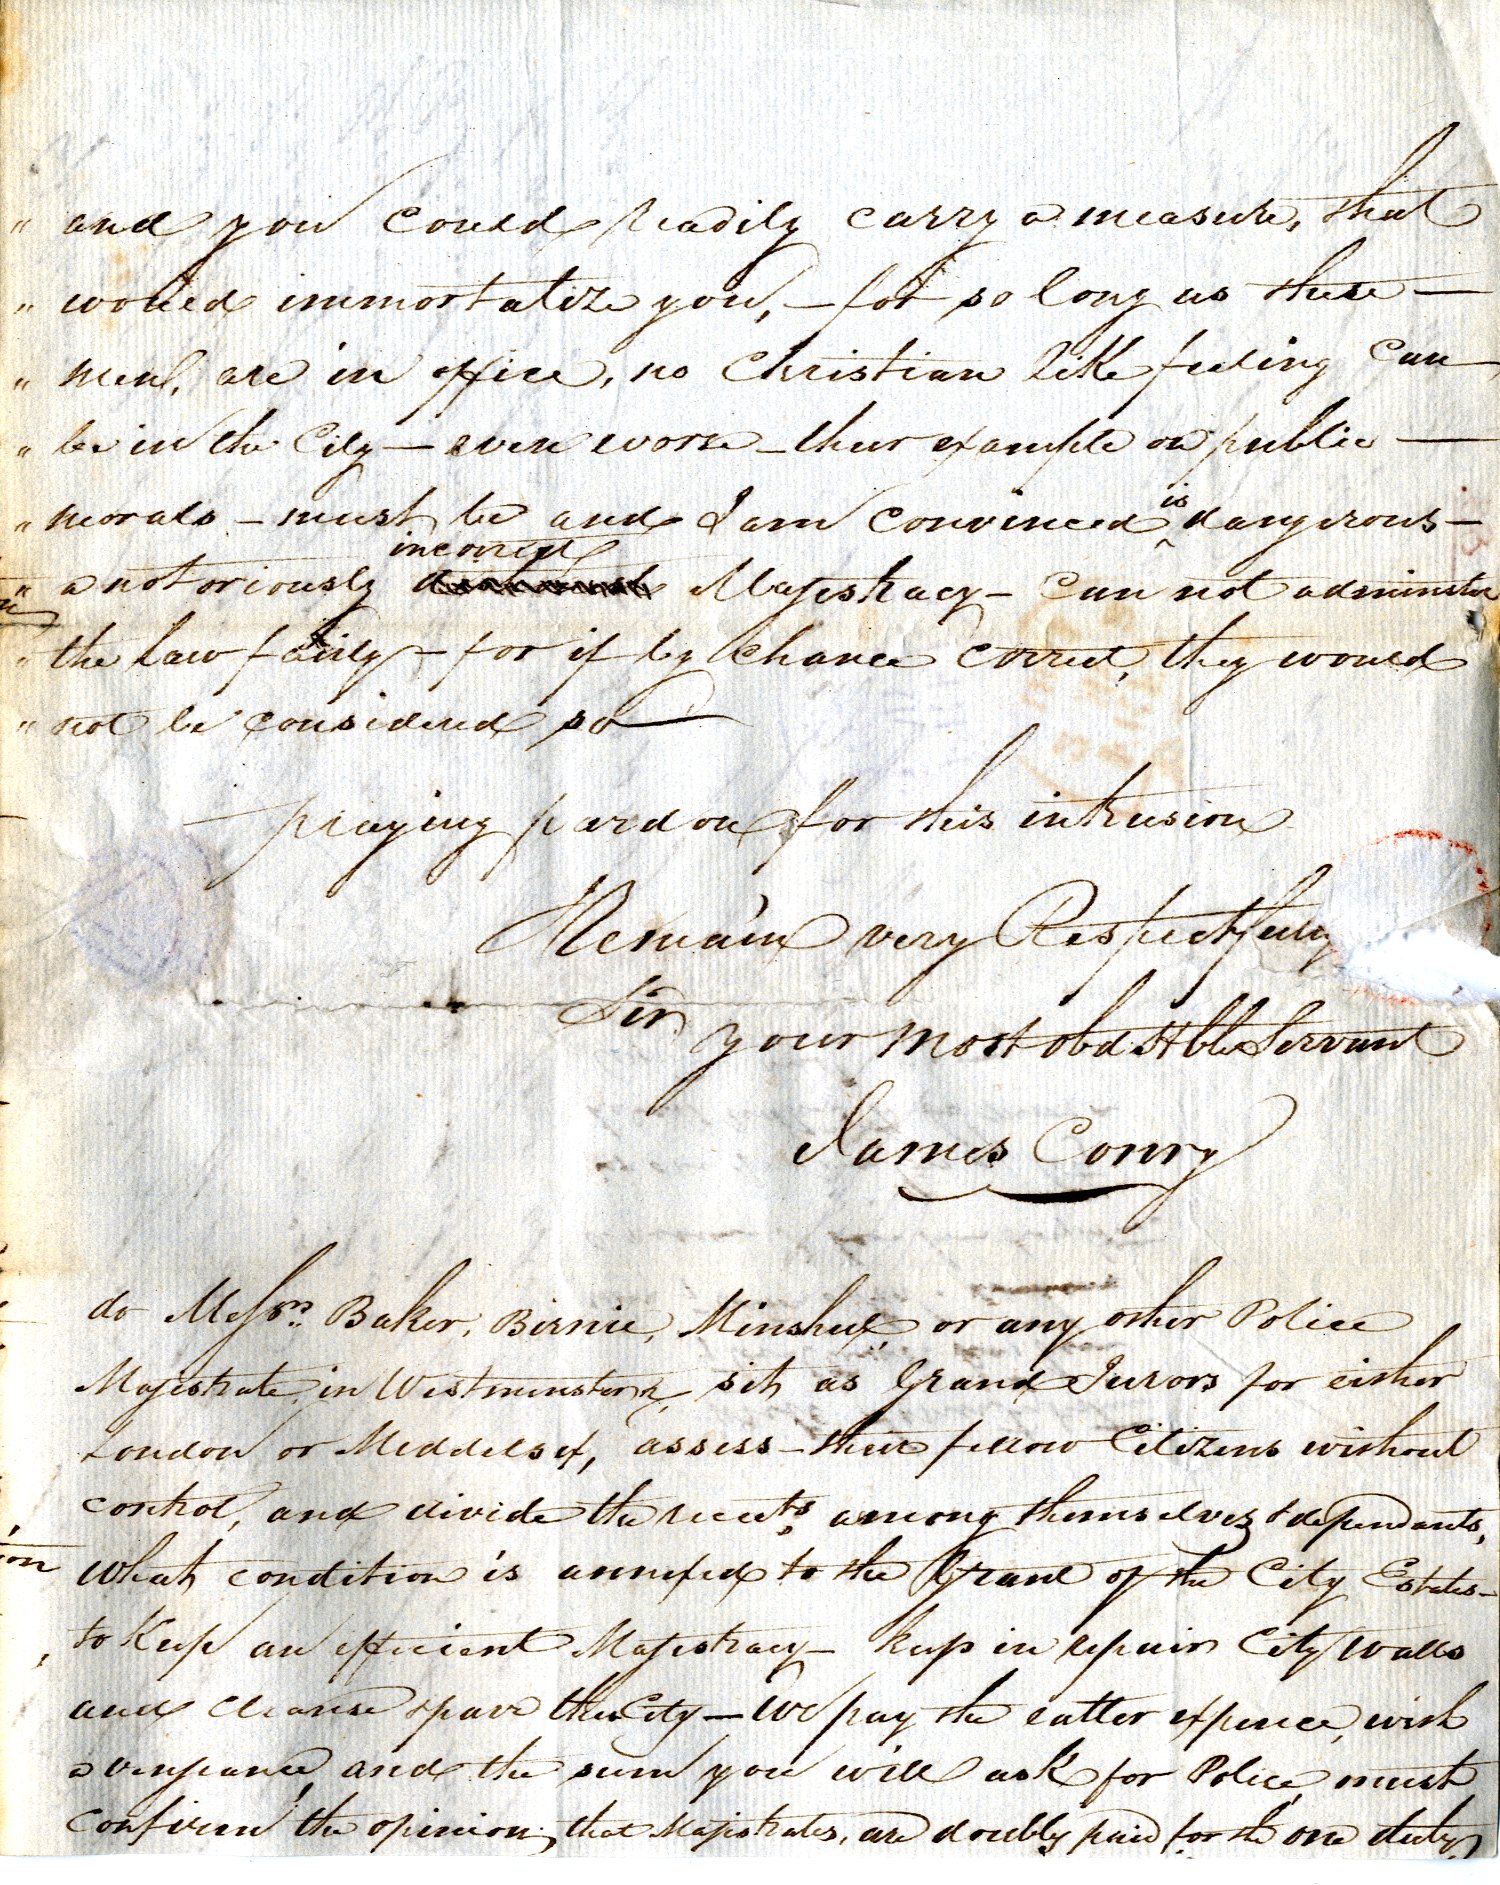 " and you could readily carry a measure, that
" would immortalize you, – for so long as these –
" men, are in office, no Christian like feeling can
" be in the City – even worse – their example on public –
" morals – must be and I am convinced ^is dangerous –
incorrect
" a notoriously Majestracy – can not adminster
" the Law fairly – for if by chance correct, they would
" not be considered so –
praying pardon for this intrusion
Remain very Respectfully
Sir
your most obd Hble Servant
James Conry
do Messrs. Baker, Birnie, Minshull, or any other Police
Majestrate in Westminster, sit as Grand Jurors for either
London or Middelsex, assess – their fellow Citizens without
control, and divide the receets, among themselves & dependants,
what condition is annexed to the Grant of the City Estates –
to Keep an efficient Majestracy – keep in repair City Walls
and cleanse & pave the City – We pay the latter expence, with
a vengeance, and the sum you will ask for Police, must
confirm the opinion, that Majistrates, are doubly paid for the one duty,